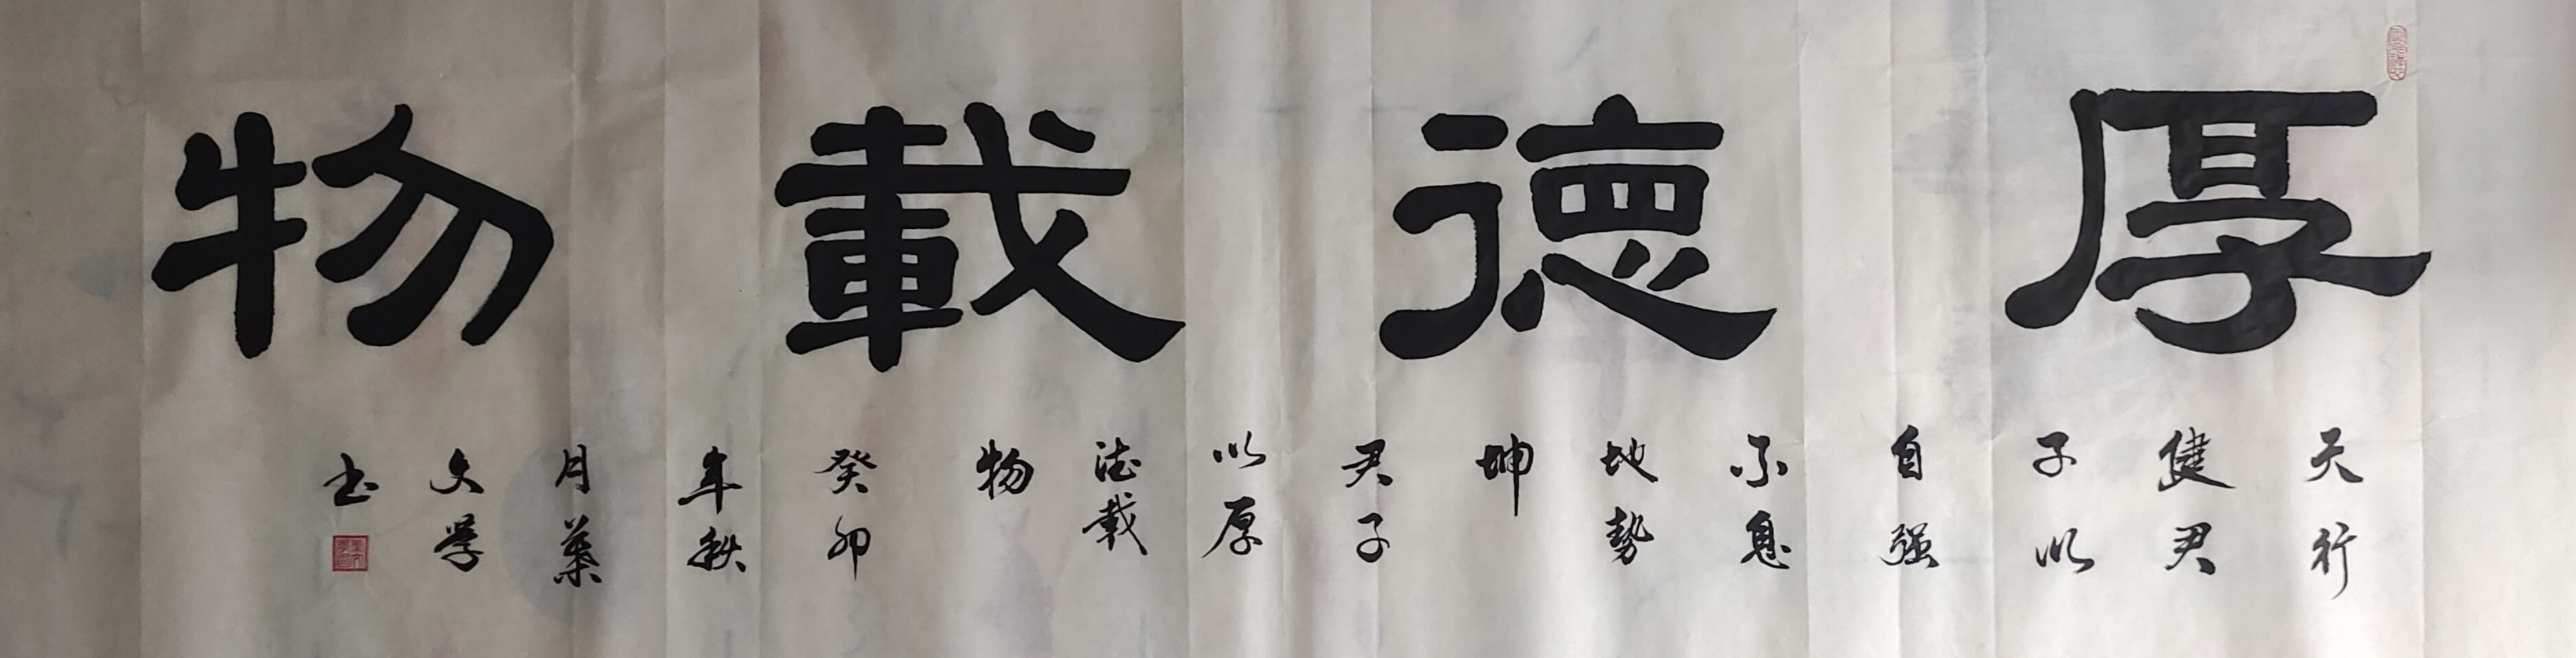 厚德載物
天行
健君
子以
自强
不息
地势
坤
君子
以厚
德载
物
癸卯
年秋
月葉
文学
书